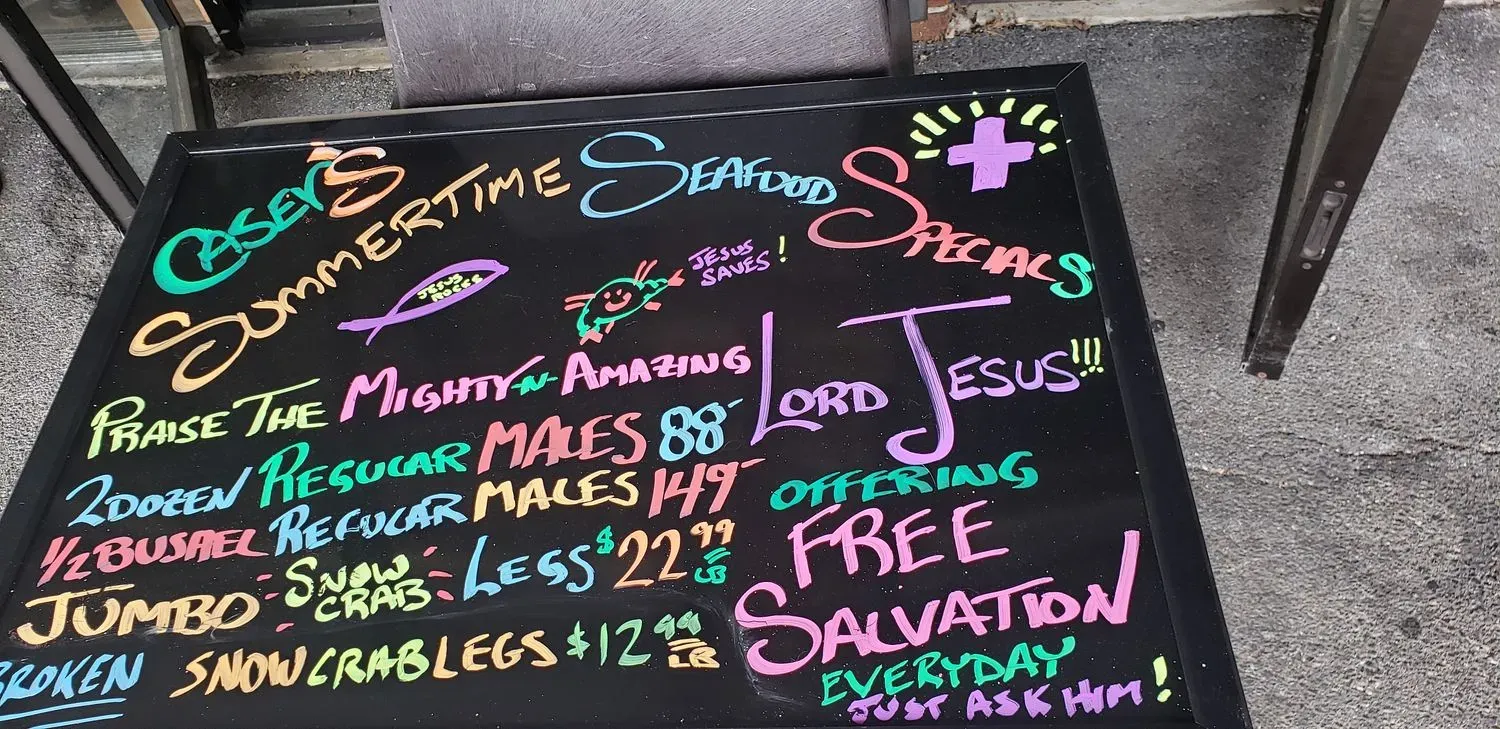 CASEY'S
SUMMERTIME SEAFOOD SPECIALS
JESUS
ROCKS
JESUS
SAVES!
PRAISE THE MIGHTY-N-AMAZING LORD JESUS!!!
2 DOZEN REGULAR MALES 88-
1/2 BUSHEL REGULAR MALES 149-
JUMBO SNOW CRAB LEGS $22.99 LB
BROKEN SNOW CRAB LEGS $12.99 LB
OFFERING
FREE
SALVATION
EVERYDAY
JUST ASK HIM!